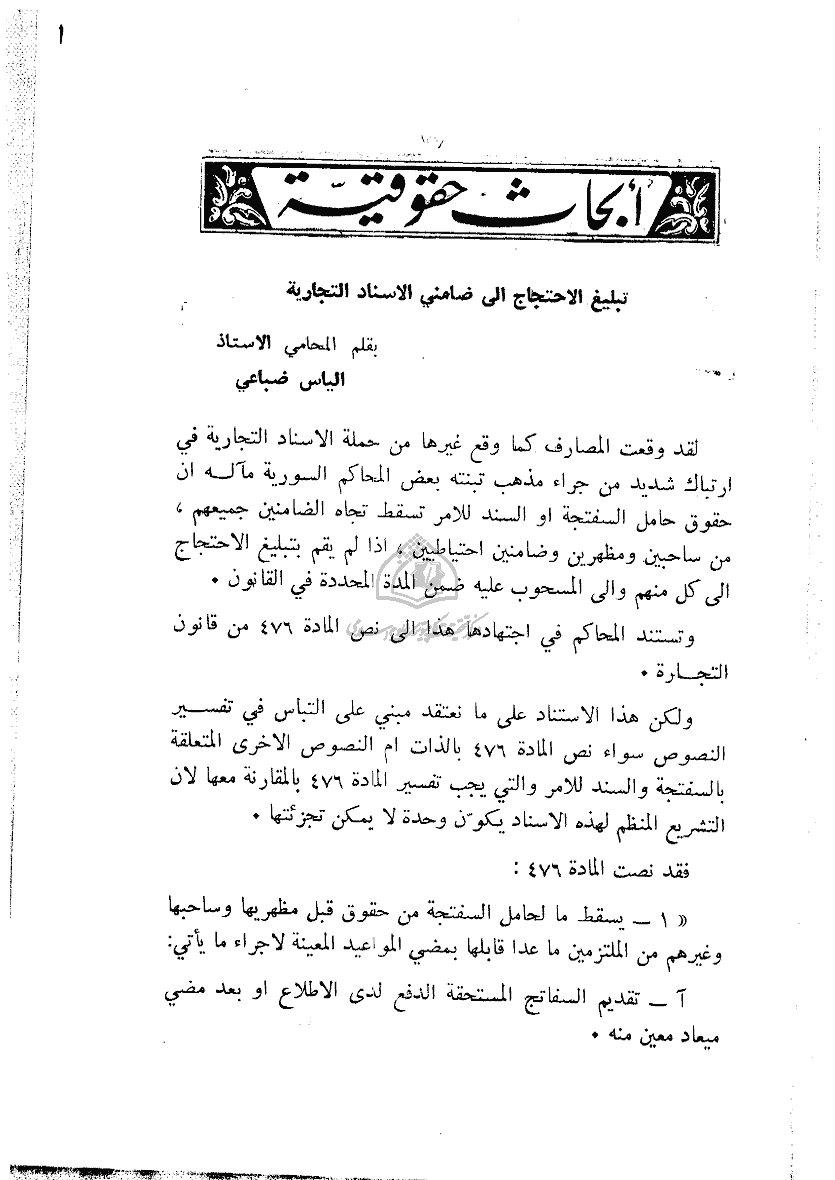 ١
أبحاث حقوقيّة
تبليغ الاحتجاج الى ضامني الاسناد التجارية
بقلم المحامي الاستاذ
الياس ضباعي
لقد وقعت المصارف كما وقع غيرها من حملة الاسناد التجارية في
ارتباك شديد من جراء مذهب تبنته بعض المحاكم السورية مآلـه ان
حقوق حامل السفتجة او السند للامر تسقط تجاه الضامنين جميعهم ،
من ساحبين ومظهرين وضامنين احتياطيين ، اذا لم يقم بتبليغ الاحتجاج
الى كل منهم والى المسحوب عليه ضمن المدة المحددة في القانون ٠
وتستند المحاكم في اجتهادها هذا الى نص المادة ٤٧٦ من قانون
التجـارة ٠
ولكن هذا الاستناد على ما نعتقد مبني على التباس في تفسـير
النصوص سواء نص المادة ٤٧٦ بالذات ام النصوص الاخرى المتعلقة
بالسفتجة والسند للامر والتي يجب تفسير المادة ٤٧٦ بالمقارنة معها لان
التشريع المنظم لهذه الاسناد يكوّن وحدة لا يمكن تجزئتها ٠
فقد نصت المادة ٤٧٦ :
« ١ ـ يسقط ما لحامل السفتجة من حقوق قبل مظهريها وساحبها
وغيرهم من الملتزمين ما عدا قابلها بمضي المواعيد المعينة لاجراء ما يأتي:
آ ـ تقديم السفاتج المستحقة الدفع لدى الاطلاع او بعد مضي
ميعاد معين منه ٠